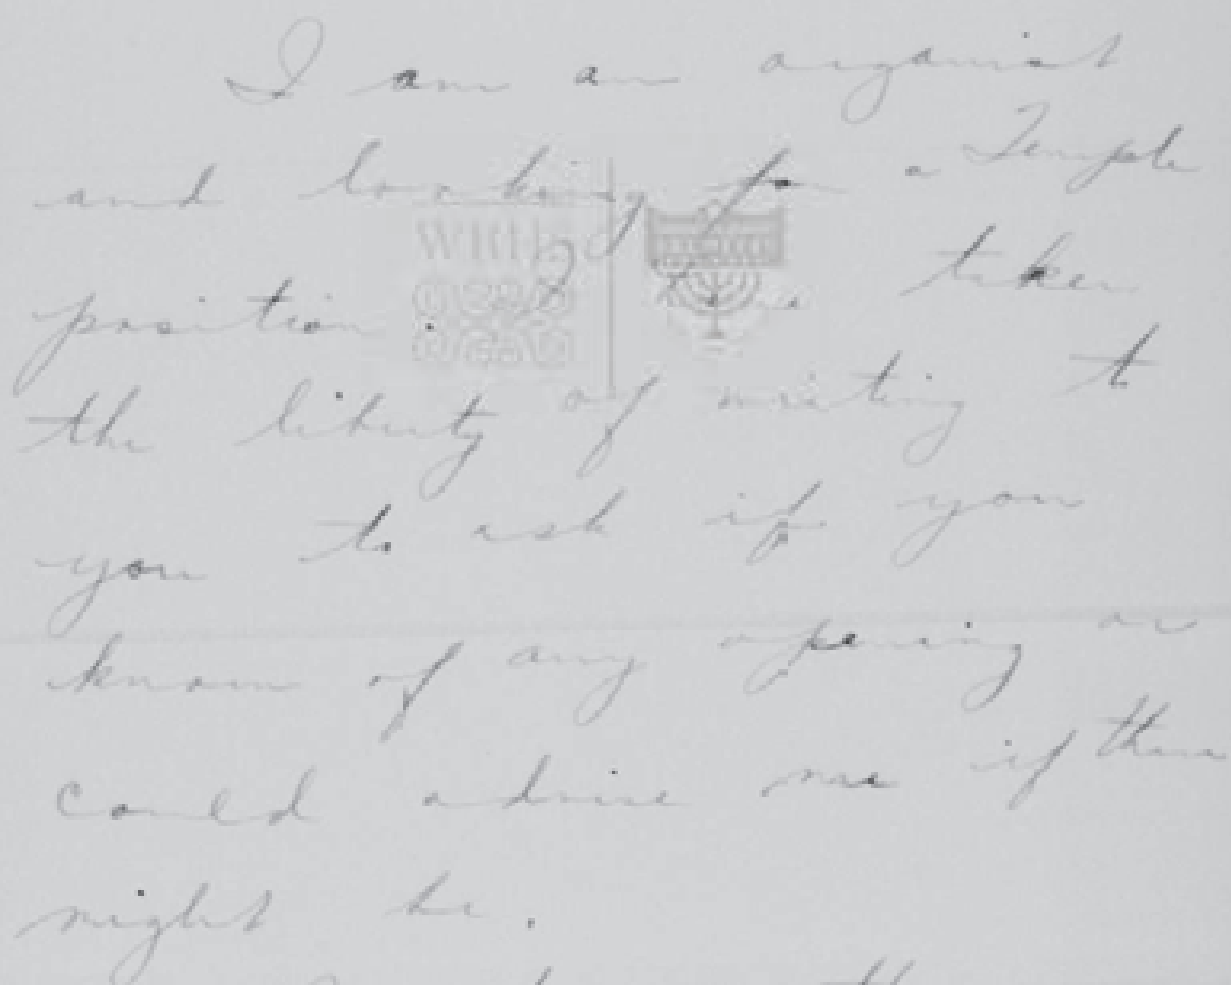 I am an organist
and looking for a Temple
position. I have taken
the liberty of writing to
you to ask if you
know of any opening or
could advise me if there
might be.